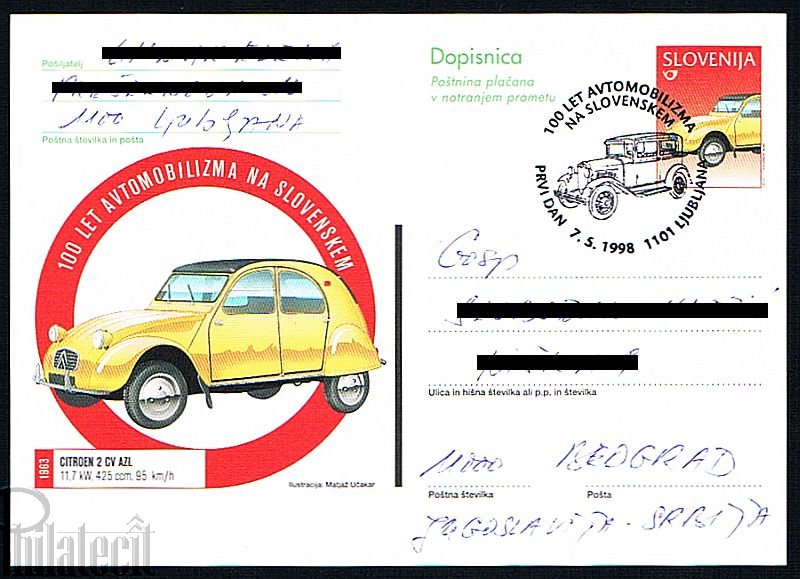 Pošiljatelj
1100 Ljubljana
Poštna številka in pošta
Dopisnica
Poštnina plačana
v notranjem prometu
SLOVENIJA
100 LET AVTOMOBILIZMA
NA SLOVENSKEM
PRVI DAN 7. 5. 1998 1101 LJUBLJANA
100 LET AVTOMOBILIZMA NA SLOVENSKEM
1963
CITROEN 2 CV AZL
11,7 kW, 425 ccm, 95 km/h
Ilustracija: Matjaž Učakar
Gosp
Ulica in hišna številka ali p.p. in številka
11000 BEOGRAD
Poštna številka Pošta
JUGOSLAVIJA - SRBIJA
Philatelit